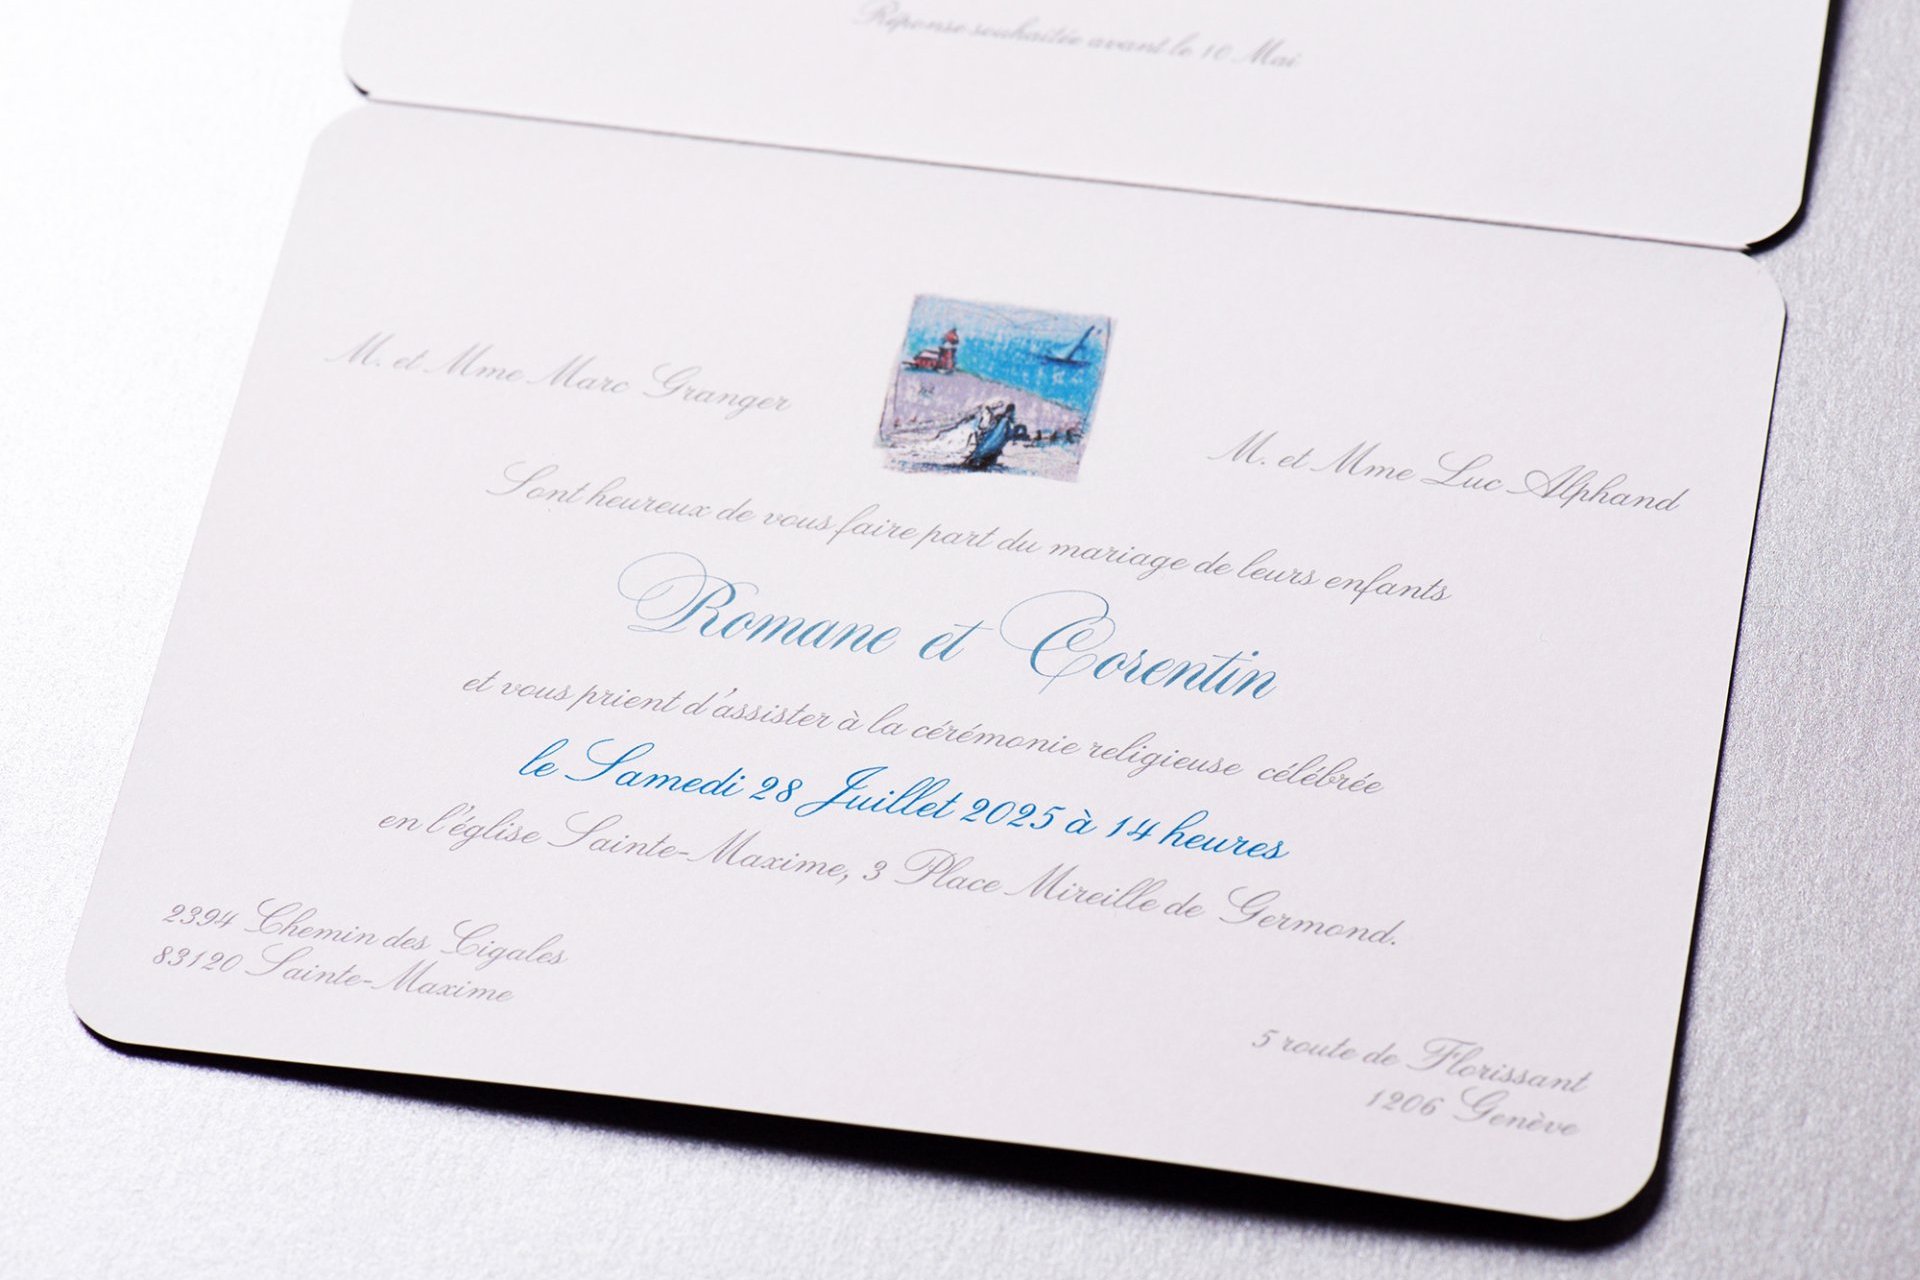 Réponse souhaitée avant le 10 Mai
M. et Mme Marc Granger
M. et Mme Luc Alphand
Sont heureux de vous faire part du mariage de leurs enfants
Romane et Corentin
et vous prient d'assister à la cérémonie religieuse célébrée
le Samedi 28 Juillet 2025 à 14 heures
en l'église Sainte-Maxime, 3 Place Mireille de Germond.
2394 Chemin des Cigales
83120 Sainte-Maxime
5 route de Florissant
1206 Genève